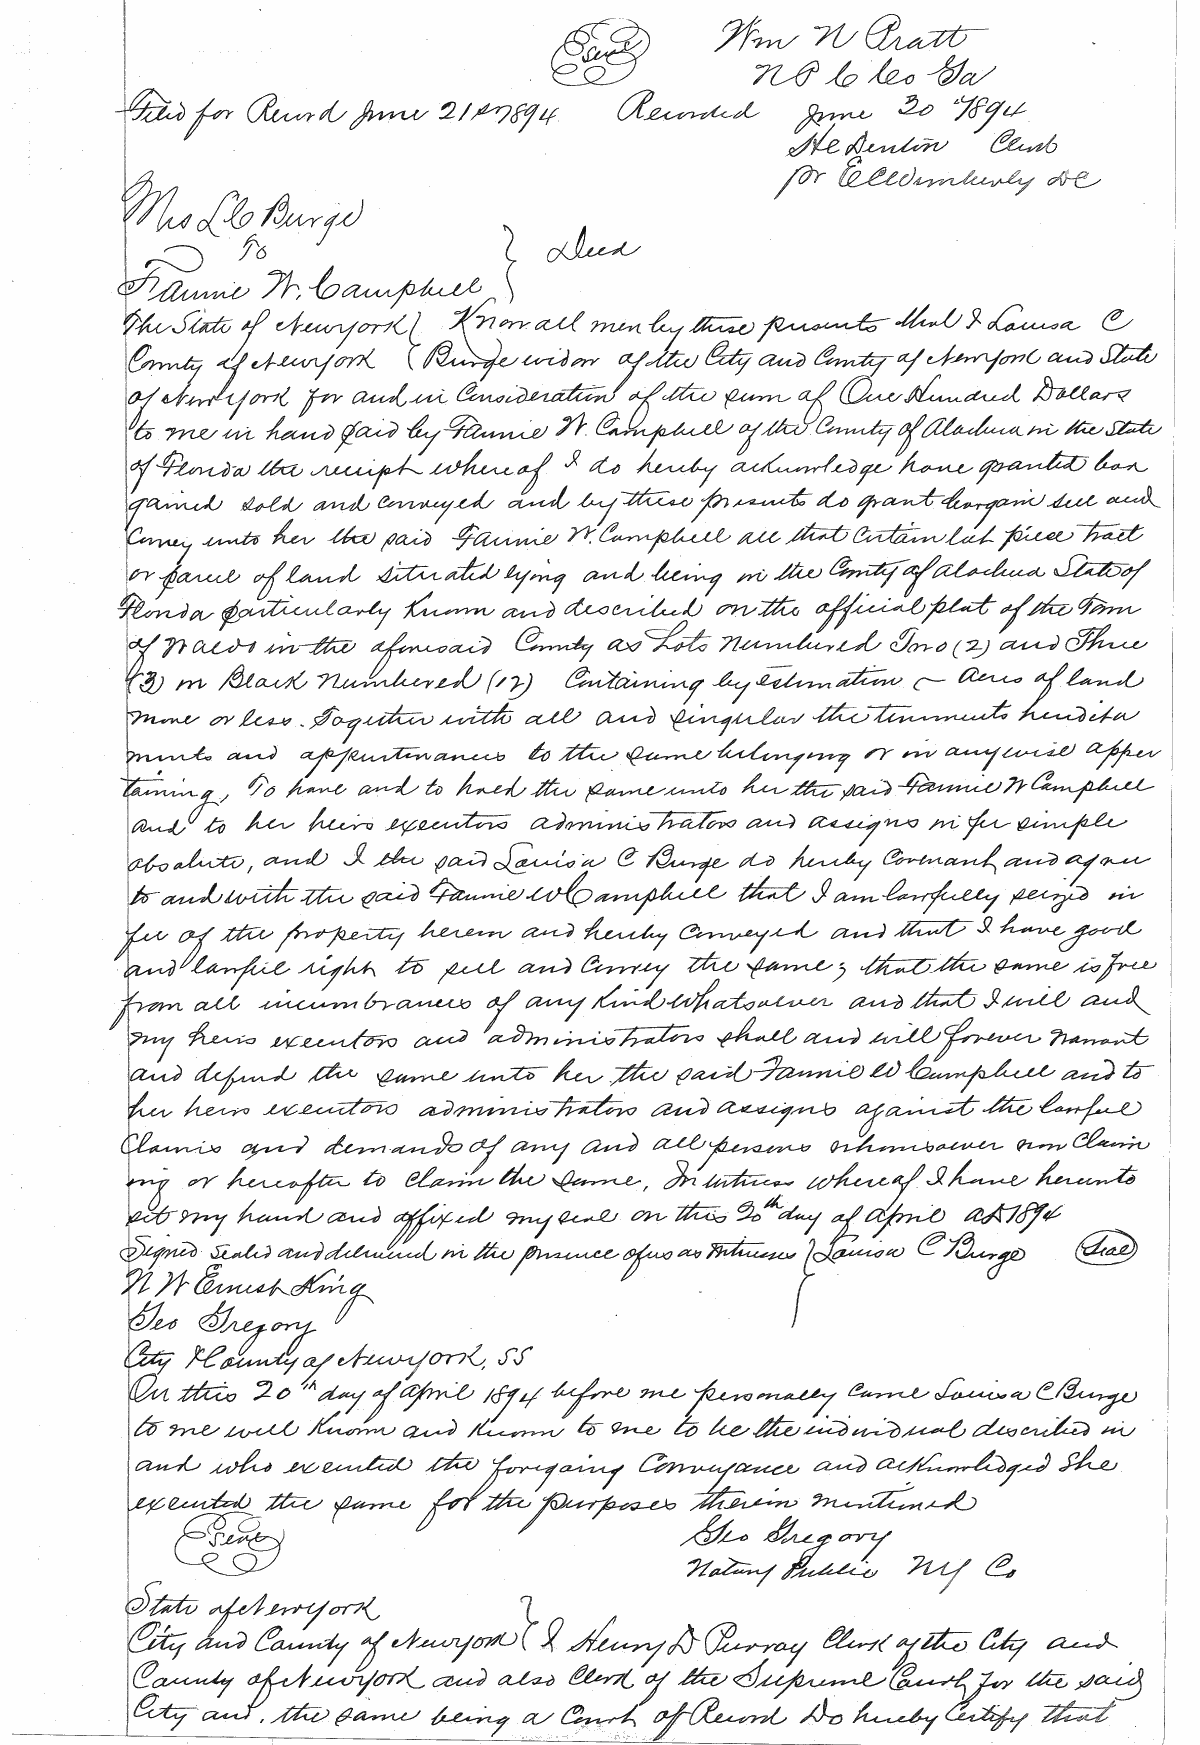 Seal Wm N Pratt
N P C Co Ga
Filed for Record June 21st 1894 Recorded June 30 1894
H C Denton Clerk
pr DC
Mrs L C Burge
To } Deed
Fannie W. Campbell
The State of Newyork } Know all men by these presents that I Louisa C
County of Newyork } Burge widow of the City and County of Newyork and State
of Newyork for and in Consideration of the sum of One Hundred Dollars
to me in hand paid by Fannie W. Campbell of the County of Alachua in the State
of Florida the receipt whereof I do hereby acknowledge have granted bar
gained sold and conveyed and by these presents do grant bargain sell and
Convey unto her the said Fannie W. Campbell all that certain lot piece tract
or parcel of land situated lying and being in the County of Alachua State of
Florida particularly Known and described on the official plat of the Town
of Waldo in the aforesaid County as Lots Numbered Two (2) and Three
(3) in Block Numbered (12) Containing by estimation — Acres of land
more or less. Together with all and singular the tenments heridita
ments and appurtenances to the same belonging or in anywise apper
taining, To have and to hold the same unto her the said Fannie W Campbell
and to her heirs executors administrators and assigns in fee simple
absolute, and I the said Louisa C Burge do hereby Covenant and agree
to and with the said Fannie W Campbell that I am lawfully seized in
fee of the property herein and hereby Conveyed and that I have good
and lawful right to sell and Convey the same; that the same is free
from all incumbrances of any Kind whatsoever and that I will and
my heirs executors and administrators shall and will forever warrant
and defend the same unto her the said Fannie W Campbell and to
her heirs executors administrators and assigns against the lawful
Claims and demands of any and all persons whomsoever now Claim
ing or hereafter to Claim the same, In witness whereof I have herunto
set my hand and affixed my seal on this 20th day of April AD 1894
Signed Sealed and delivered in the presence of us as Witnesses } Louisa C Burge Seal
N W Ernest King
Geo Gregory
City & County of Newyork, SS
On this 20th day of April 1894 before me personally came Louisa C Burge
to me well Known and Known to me to be the individual described in
and who executed the foregoing Conveyance and acKnowledged She
executed the same for the purposes therein mentioned
Seal Geo Gregory
Notary Public NY Co
State of Newyork }
City and County of Newyork } I Henry D Purroy Clerk of the City and
County of Newyork and also Clerk of the Supreme Court for the said
City and, the same being a Court of Record Do hereby Certify that